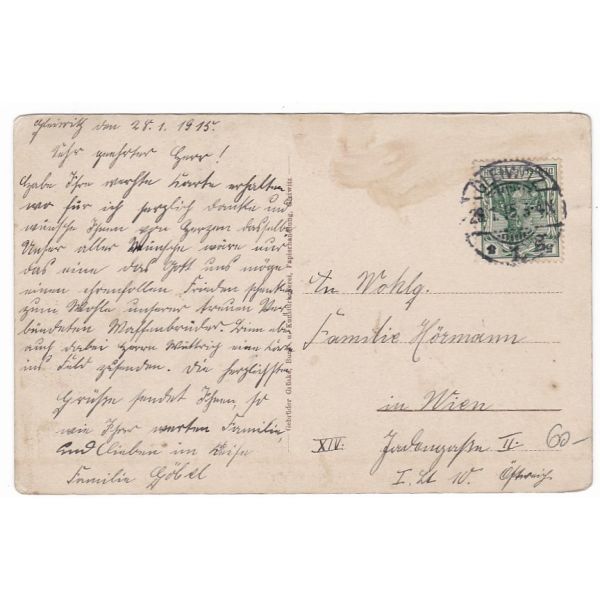 Gleiwitz den 28.1.1915.
Sehr geehrter Herr!
Habe Ihre werthe Karte erhalten
wo für ich herzlich danke und
wünsche Ihnen von Herzen dasselbe
Unser aller Wünsche wäre nur
das eine das Gott uns möge
einen ehrenvollen Frieden schenken
zum Wohle unserer treuen Ver
bündeten Waffenbrüder. Bin
auch dabei Herrn Wuttrich eine Karte
ins Feld zusenden. Die herzlichsten
Grüße sendet Ihnen, so
wie Ihrer werten Familie
und lieben im Kreise
Familie Göbel
Gebrüder Buch- u. Kunstdruckerei, Papierhandlung, Gleiwitz.
GLEIWITZ
An Wohlg.
Familie Hörmann
in Wien
XIV. II.
I. St. 10. Östreich
60-